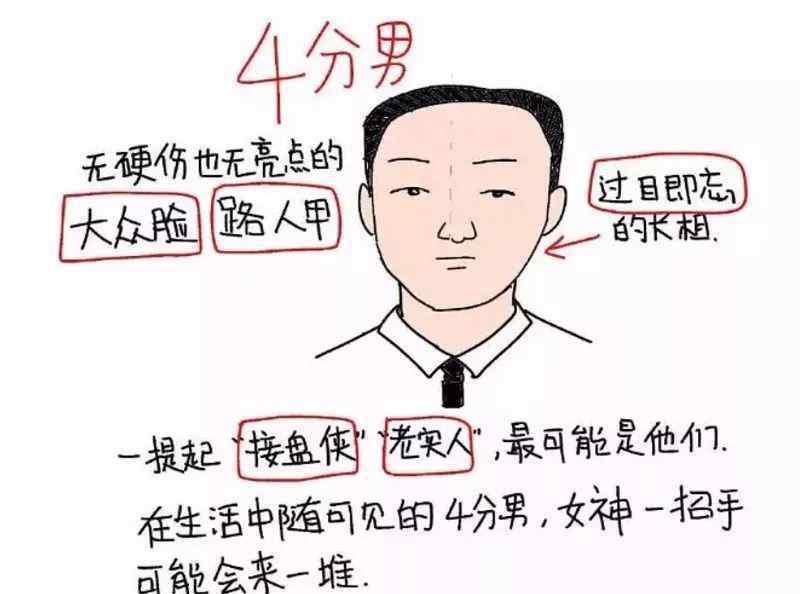 4分男
无硬伤也无亮点的
大众脸 路人甲
过目即忘
的长相.
一提起“接盘侠”“老实人”,最可能是他们.
在生活中随可见的4分男,女神一招手
可能会来一堆.